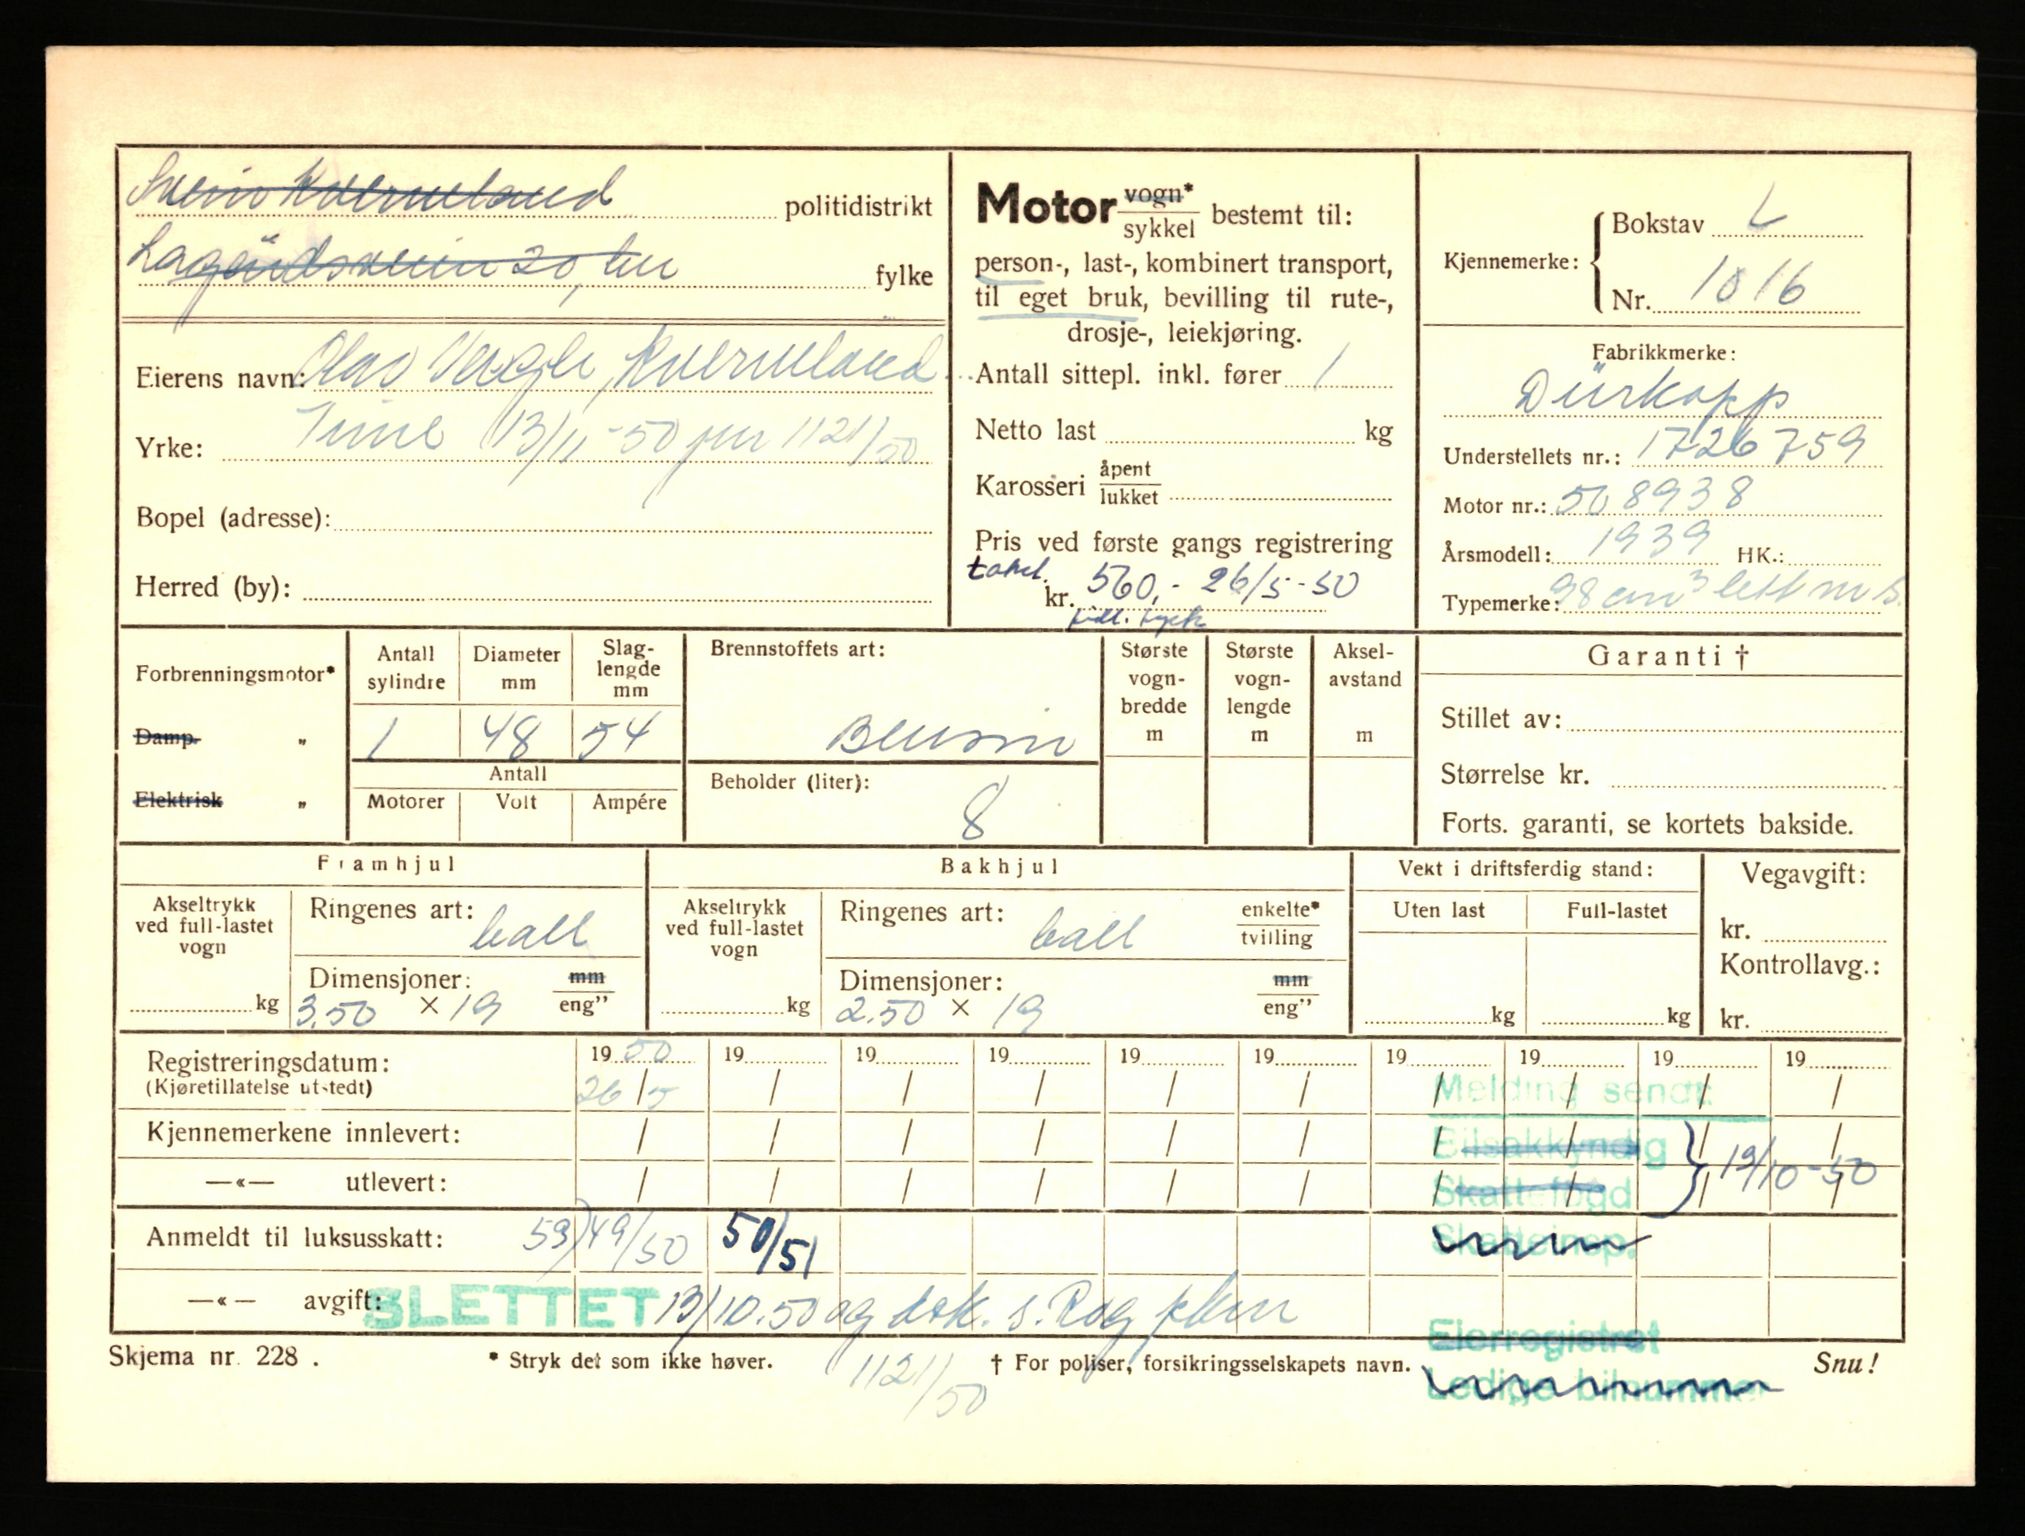 Svein Kverneland politidistrikt
Lagårdsveien 20, fylke
Eierens navn: Olav Kverneland
Yrke: Time 13/11-50 jnr 1121/50
Bopel (adresse):
Herred (by):
Motor vogn* / sykkel bestemt til:
person-, last-, kombinert transport,
til eget bruk, bevilling til rute-,
drosje-, leiekjøring.
Antall sittepl. inkl. fører 1
Netto last kg
Karosseri åpent / lukket
Pris ved første gangs registrering
takst. kr. 560,- 26/5-50
Kjennemerke: Bokstav L
Nr. 1016
Fabrikkmerke:
Dürkopp
Understellets nr.: 1726759
Motor nr.: 508938
Årsmodell: 1939 HK.:
Typemerke: 98 cm³ lett m.s.
Forbrenningsmotor*
Damp. „
Elektrisk „
Antall sylindre 1
Diameter mm 48
Slag-lengde mm 54
Antall
Motorer Volt Ampére
Brennstoffets art:
Bensin
Beholder (liter):
8
Største vogn-bredde m
Største vogn-lengde m
Aksel-avstand m
Garanti †
Stillet av:
Størrelse kr.
Forts. garanti, se kortets bakside.
Framhjul
Akseltrykk ved full-lastet vogn kg
Ringenes art: ball
Dimensjoner: mm / eng”
3.50 × 19
Bakhjul
Akseltrykk ved full-lastet vogn kg
Ringenes art: ball enkelte* / tvilling
Dimensjoner: mm / eng”
2.50 × 19
Vekt i driftsferdig stand:
Uten last Full-lastet
kg kg
Vegavgift:
kr.
Kontrollavg.:
kr.
Registreringsdatum: 1950 19 19 19 19 19 19 19 19 19
(Kjøretillatelse utstedt) 26/5 / / / / / / / / /
Melding sendt:
Kjennemerkene innlevert: / / / / / / / / / /
Bilsakkyndig
—«— utlevert: / / / / / / / / / /
Skattefogd
19/10-50
Anmeldt til luksusskatt: 59) 49/50 50/51
Skatteinsp.
—«— avgift:
SLETTET 13/10.50 og s. Rog
Eierregistret
Skjema nr. 228. * Stryk det som ikke høver. † For poliser, forsikringsselskapets navn. Snu!
1121/50
Ledige bilnummer